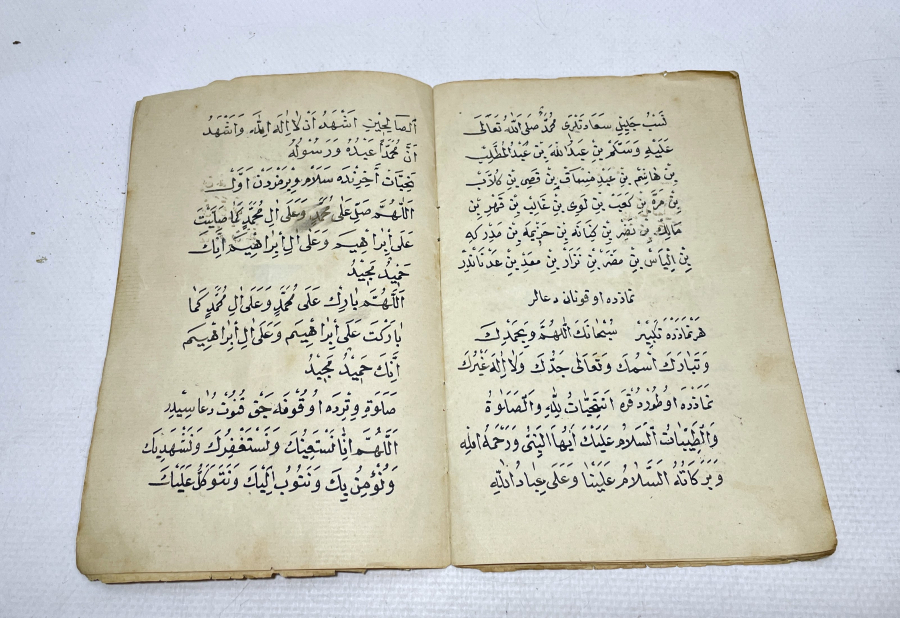 نسب جليل سعادتلرى محمد صلى الله تعالى
عليه وسلم بن عبدالله بن عبدالمطلب
بن هاشم بن عبد مناف بن قصى بن كلاب
بن مرة بن كعب بن لوى بن غالب بن فهر بن
مالك بن نضر بن كنانه بن خزيمة بن مدركه
بن الياس بن مضر بن نزار بن معد بن عدناندر
نمازده اوقونان دعالر
هر نمازده تكبير سُبْحَانَكَ اللّٰهُمَّ وَبِحَمْدِكَ
وَتَبَارَكَ اسْمُكَ وَتَعَالٰى جَدُّكَ وَلَا اِلٰهَ غَيْرُكَ
نمازده اوطوردقده اَلتَّحِيَّاتُ لِلّٰهِ وَالصَّلَوٰةُ
وَالطَّيِّبَاتُ اَلسَّلَامُ عَلَيْكَ اَيُّهَا النَّبِىُّ وَرَحْمَةُ اللهِ
وَبَرَكَاتُهُ اَلسَّلَامُ عَلَيْنَا وَعَلٰى عِبَادِ اللّٰهِ
اَلصَّالِحِينَ اَشْهَدُ اَنْ لَا اِلٰهَ اِلَّا اللهُ وَاَشْهَدُ
اَنَّ مُحَمَّدًا عَبْدُهُ وَرَسُولُهُ
تحيات آخرنده سلام ويرمزدن اول
اَللّٰهُمَّ صَلِّ عَلٰى مُحَمَّدٍ وَعَلٰى اٰلِ مُحَمَّدٍ كَمَا صَلَّيْتَ
عَلٰى اِبْرَاهِيمَ وَعَلٰى اٰلِ اِبْرَاهِيمَ اِنَّكَ
حَمِيدٌ مَجِيدٌ
اَللّٰهُمَّ بَارِكْ عَلٰى مُحَمَّدٍ وَعَلٰى اٰلِ مُحَمَّدٍ كَمَا
بَارَكْتَ عَلٰى اِبْرَاهِيمَ وَعَلٰى اٰلِ اِبْرَاهِيمَ
اِنَّكَ حَمِيدٌ مَجِيدٌ
صلوة وترده اوقونه جق قنوت دعاسيدر
اَللّٰهُمَّ اِنَّا نَسْتَعِينُكَ وَنَسْتَغْفِرُكَ وَنَسْتَهْدِيكَ
وَنُؤْمِنُ بِكَ وَنَتُوبُ اِلَيْكَ وَنَتَوَكَّلُ عَلَيْكَ